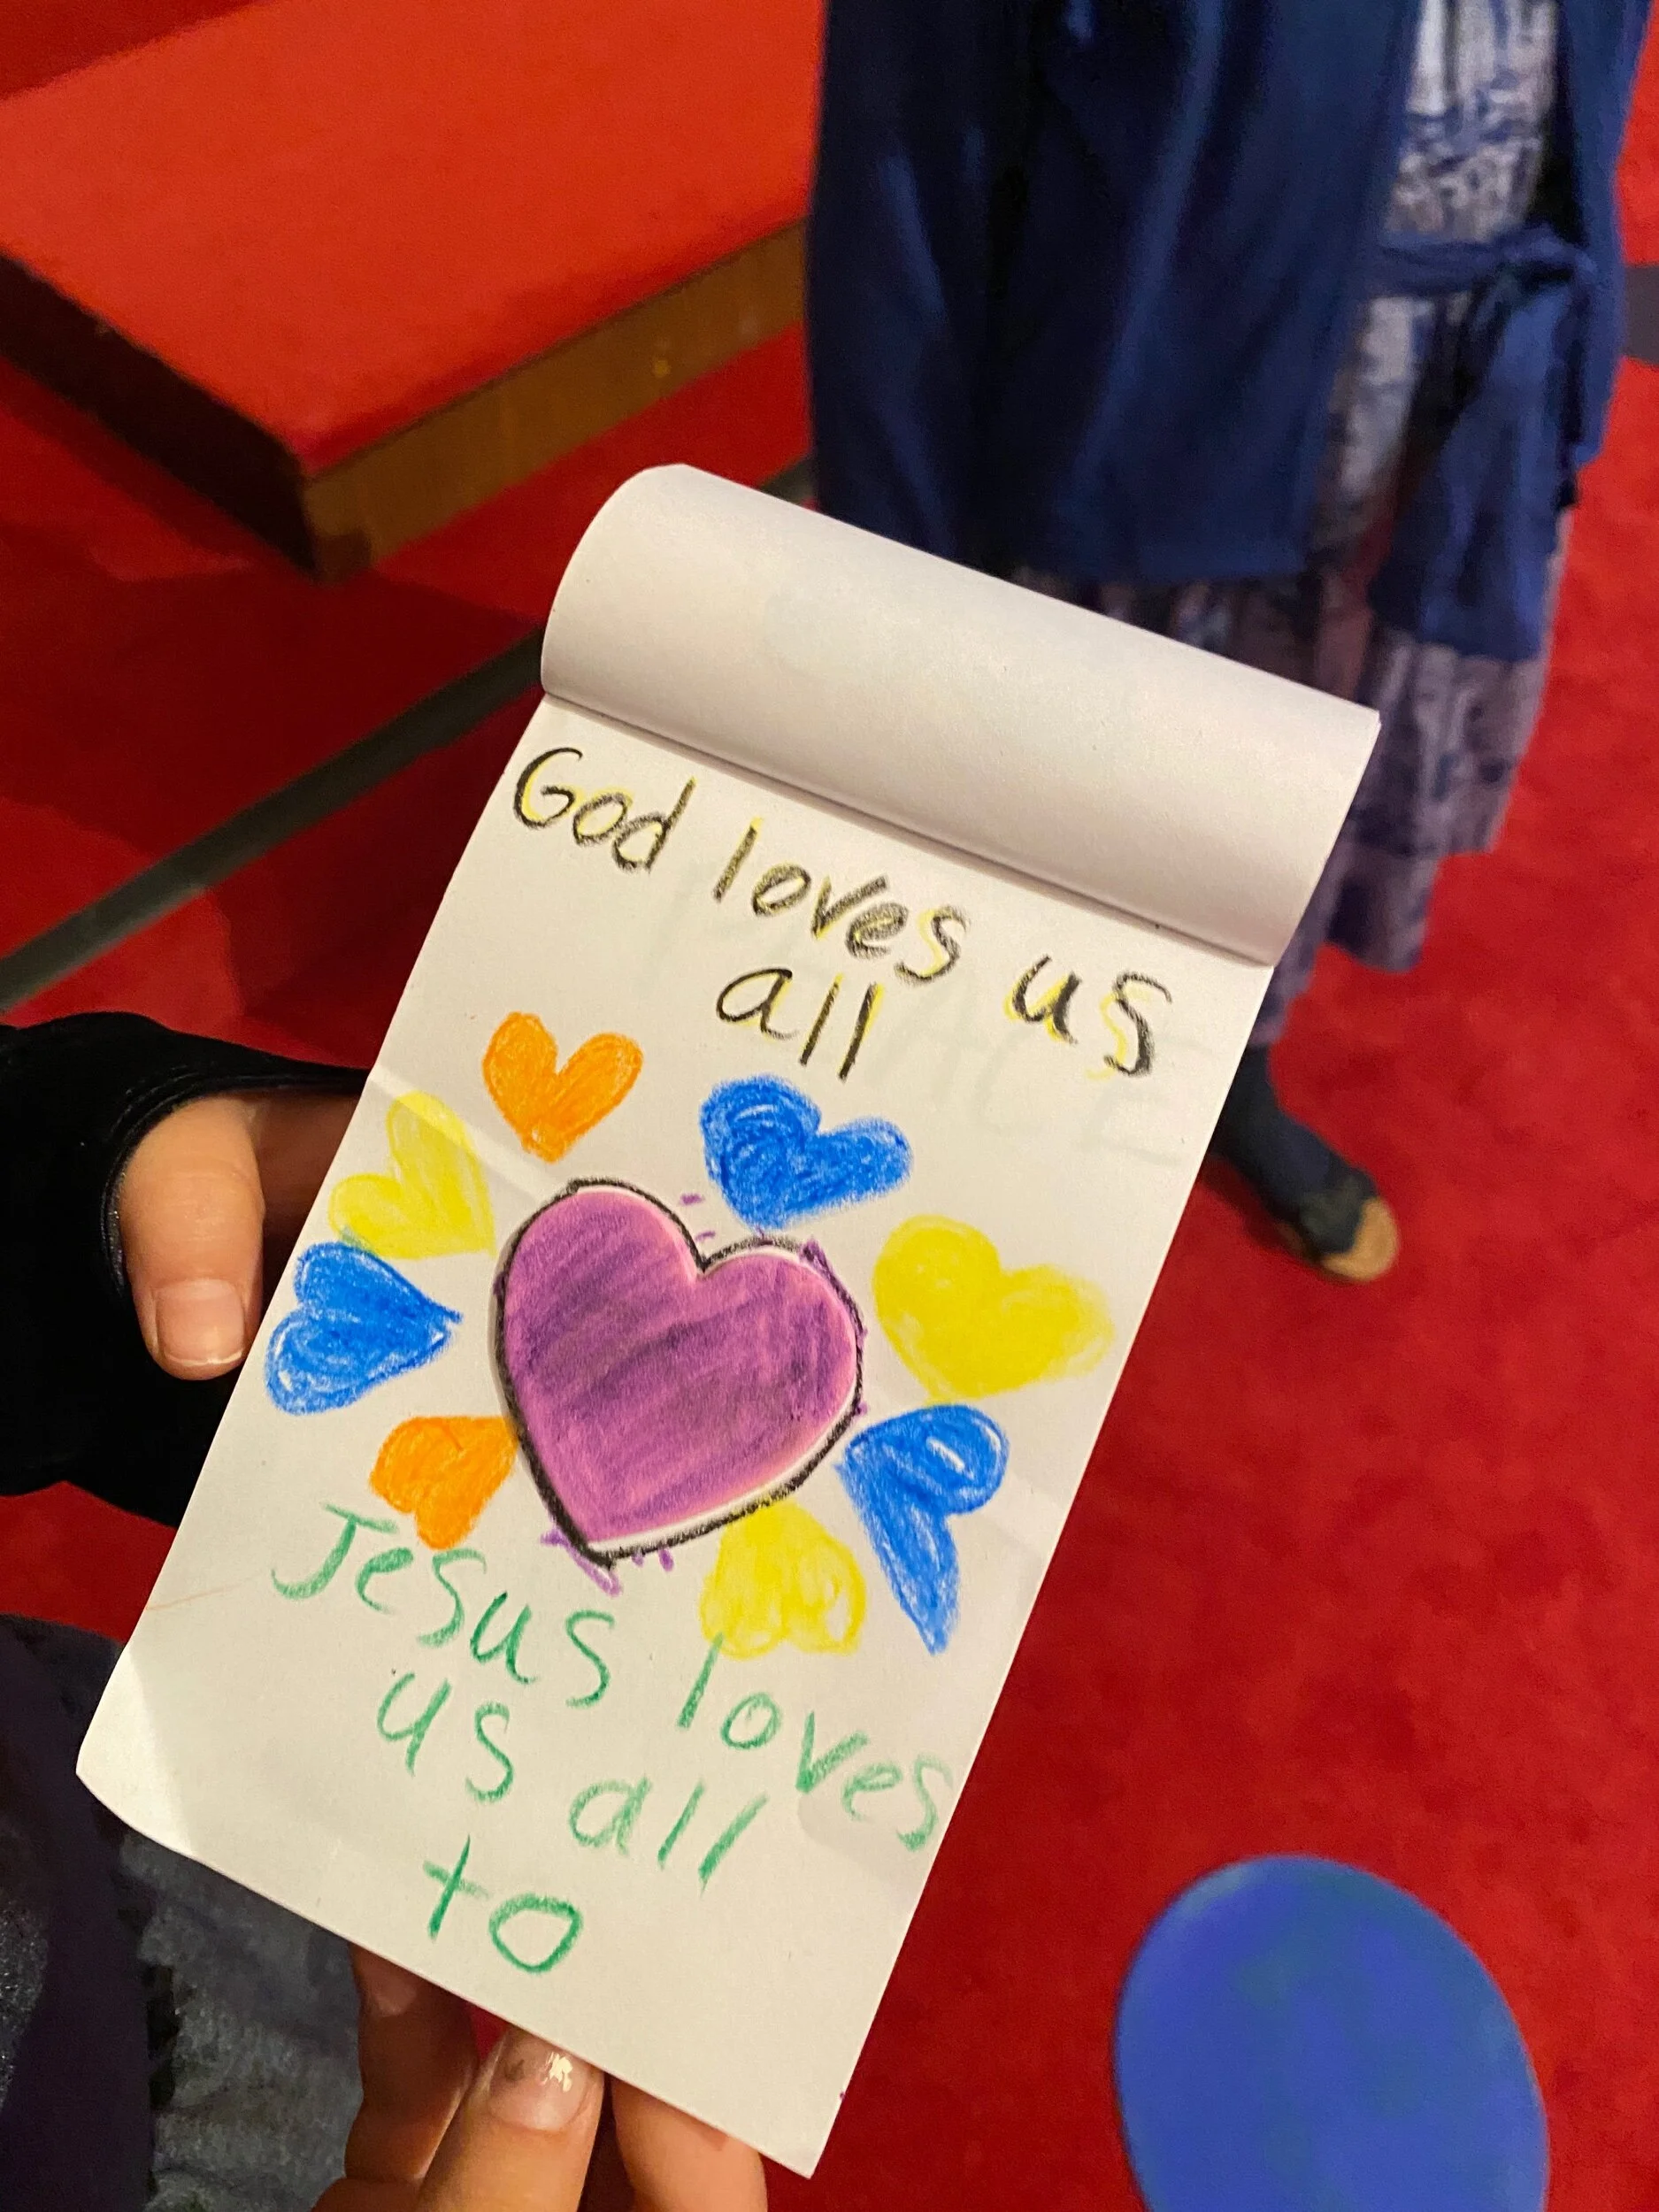 God loves us
all
Jesus loves
us all
to